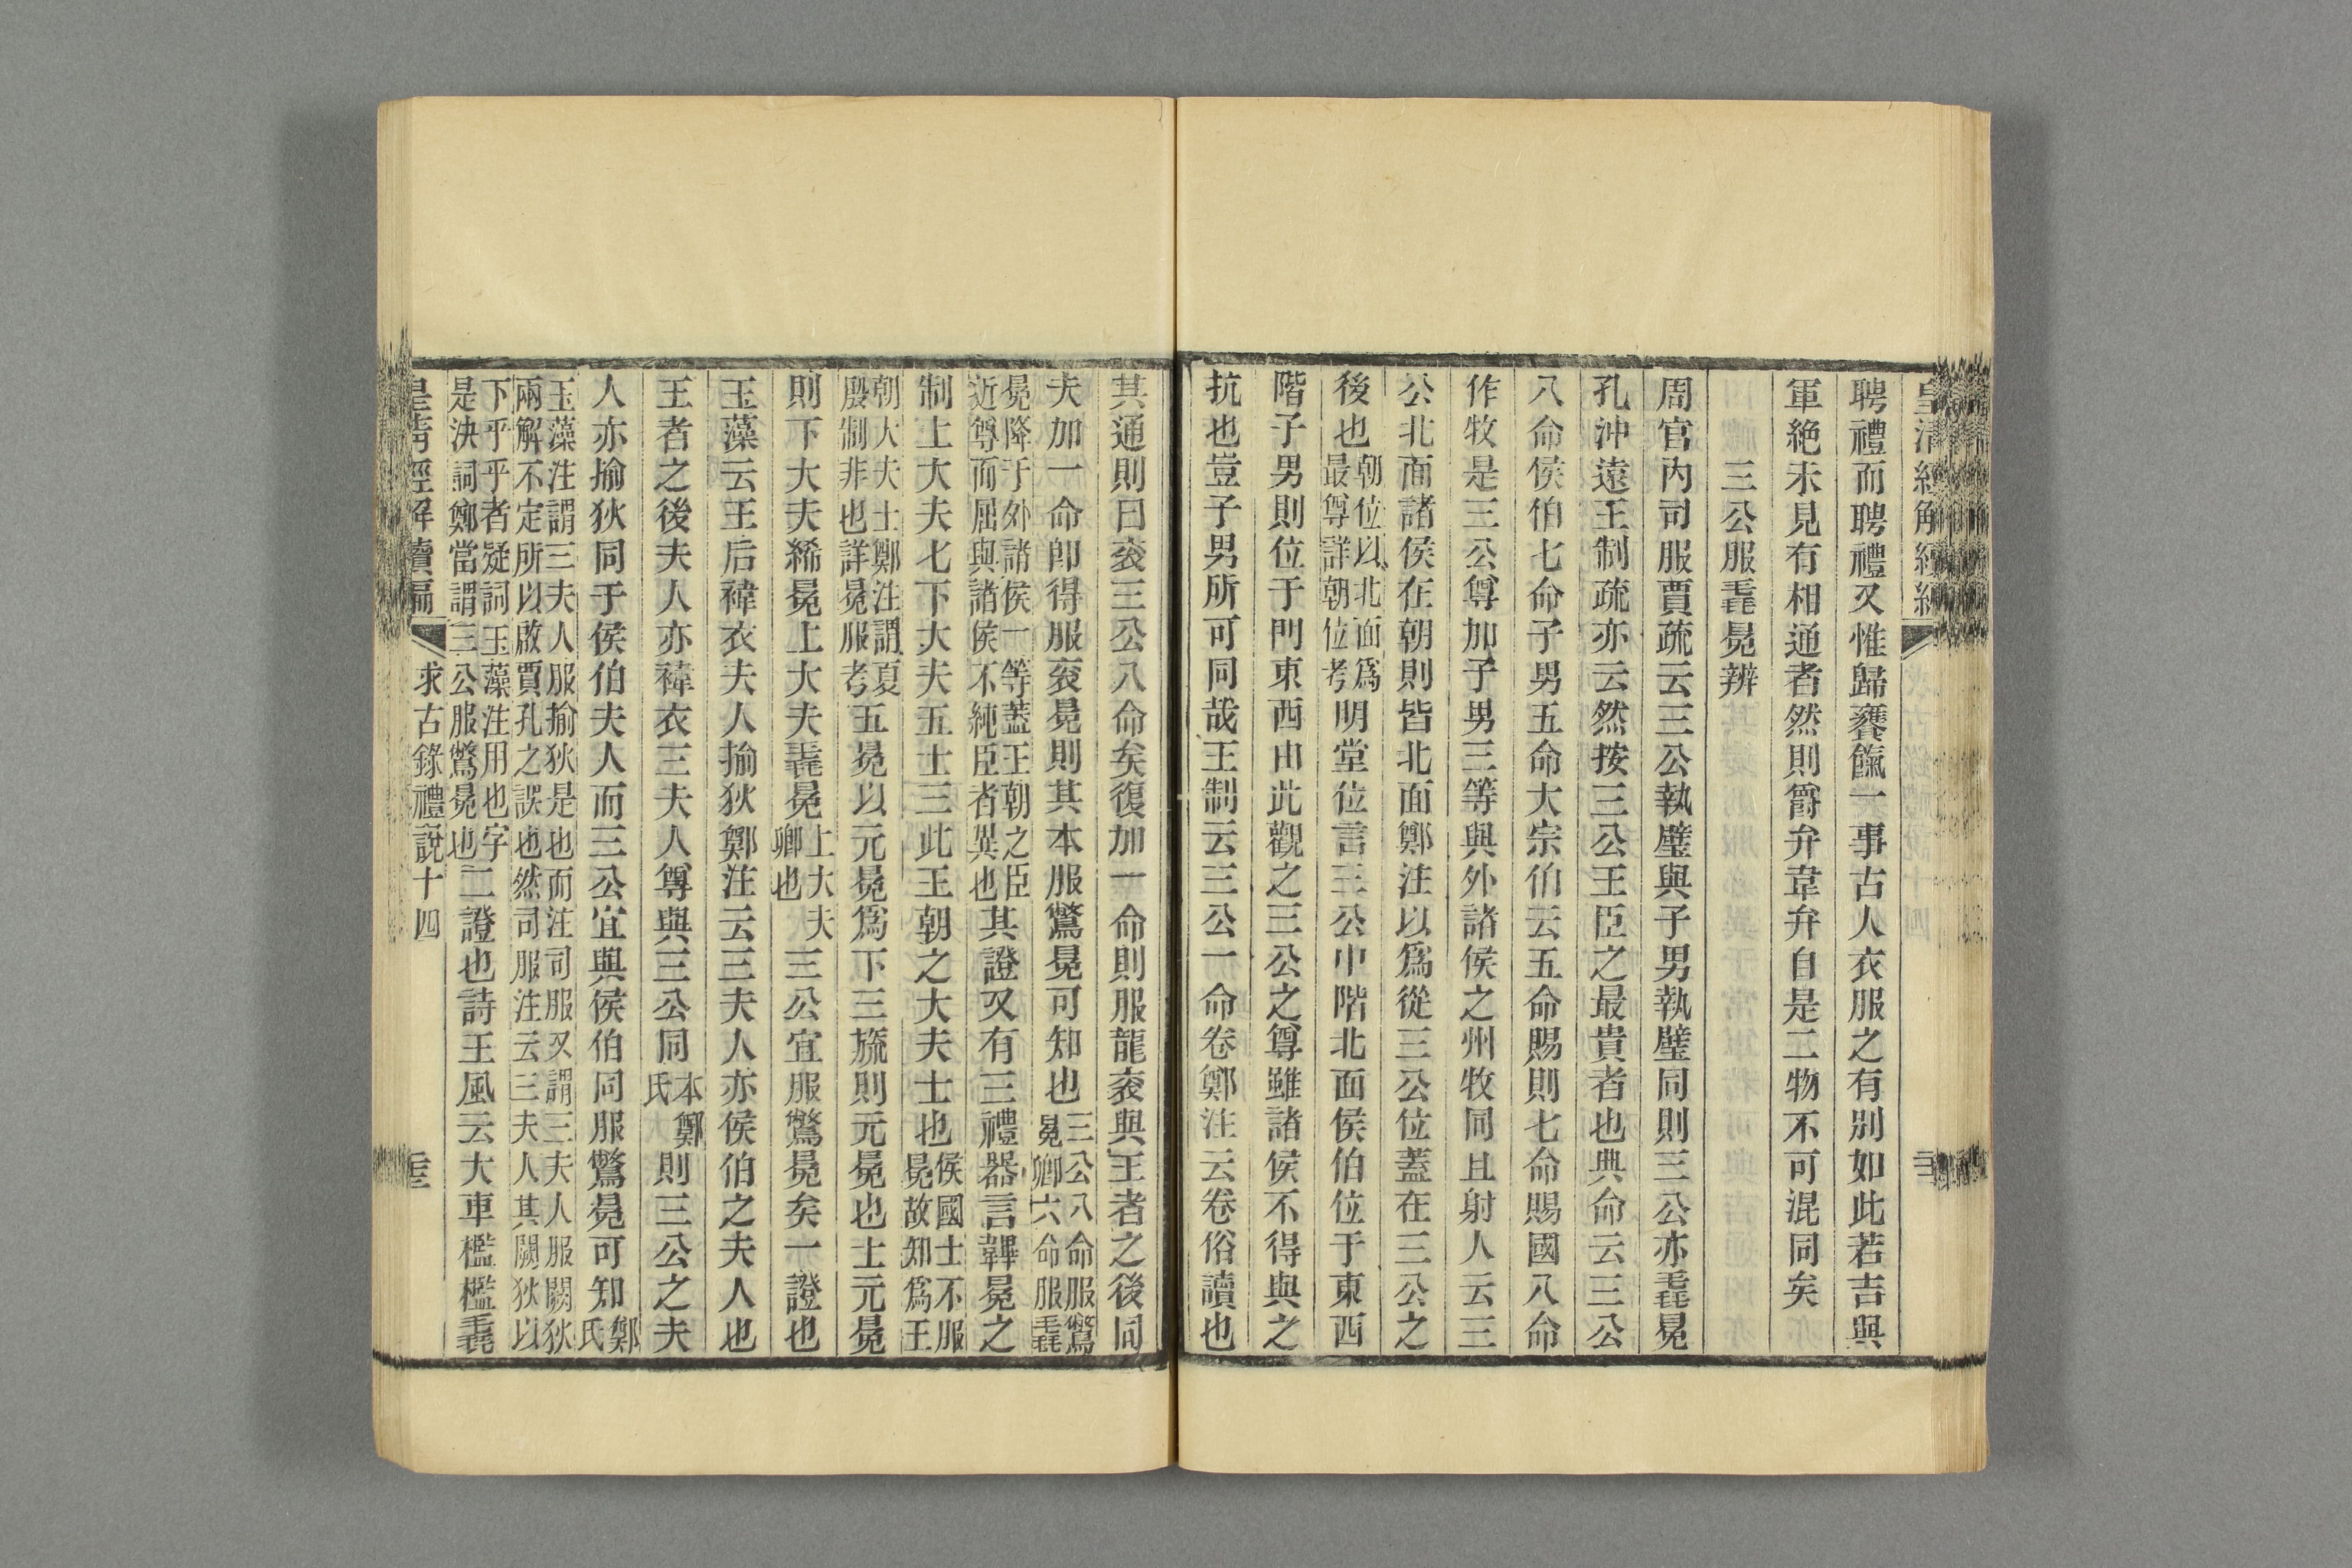 皇清經解續
聘禮而聘禮又惟歸饔餼一事古人衣服之有別如此若吉與
軍絶未見有相通者然則爵弁韋弁自是二物不可混同矣
三公服毳冕辨
周官內司服賈疏云三公執璧與子男執璧同則三公亦毳冕
孔沖遠王制疏亦云然按三公王臣之最貴者也典命云三公
八命侯伯七命子男五命大宗伯云五命賜則七命賜國八命
作牧是三公尊加子男三等與外諸侯之州牧同且射人云三
公北面諸侯在朝則皆北面鄭注以爲從三公位蓋在三公之
後也朝位以北面爲最尊詳朝位考明堂位言三公中階北面侯伯位于東西
階子男則位于門東西由此觀之三公之尊雖諸侯不得與之
抗也豈子男所可同哉王制云三公一命卷鄭注云卷俗讀也
其通則曰衮三公八命矣復加一命則服龍衮與王者之後同
夫加一命卽得服衮冕則其本服鷩冕可知也三公八命服鷩冕卿六命服毳
冕降于外諸侯一等蓋王朝之臣近尊而屈與諸侯不純臣者異也其證又有三禮器言諸冕之
制上大夫七下大夫五士三此王朝之大夫士也侯國士不服冕故知爲王
朝大夫士鄭注謂夏殷制非也詳冕服考五冕以元冕爲下三旒則元冕也士元冕
則下大夫絺冕上大夫毳冕上大夫卿也三公宜服鷩冕矣一證也
玉藻云王后褘衣夫人揄狄鄭注云三夫人亦侯伯之夫人也
王者之後夫人亦褘衣三夫人尊與三公同本鄭氏則三公之夫
人亦揄狄同于侯伯夫人而三公宜與侯伯同服鷩冕可知鄭氏
玉藻注謂三夫人服揄狄是也而注司服又謂三夫人服闕狄兩解不定所以啟賈孔之誤也然司服注云三夫人其闕狄以
下乎乎者疑詞玉藻注用也字是決詞鄭當謂三公服鷩冕也二證也詩王風云大車檻檻毳
皇清經解續編
求古錄禮說十四